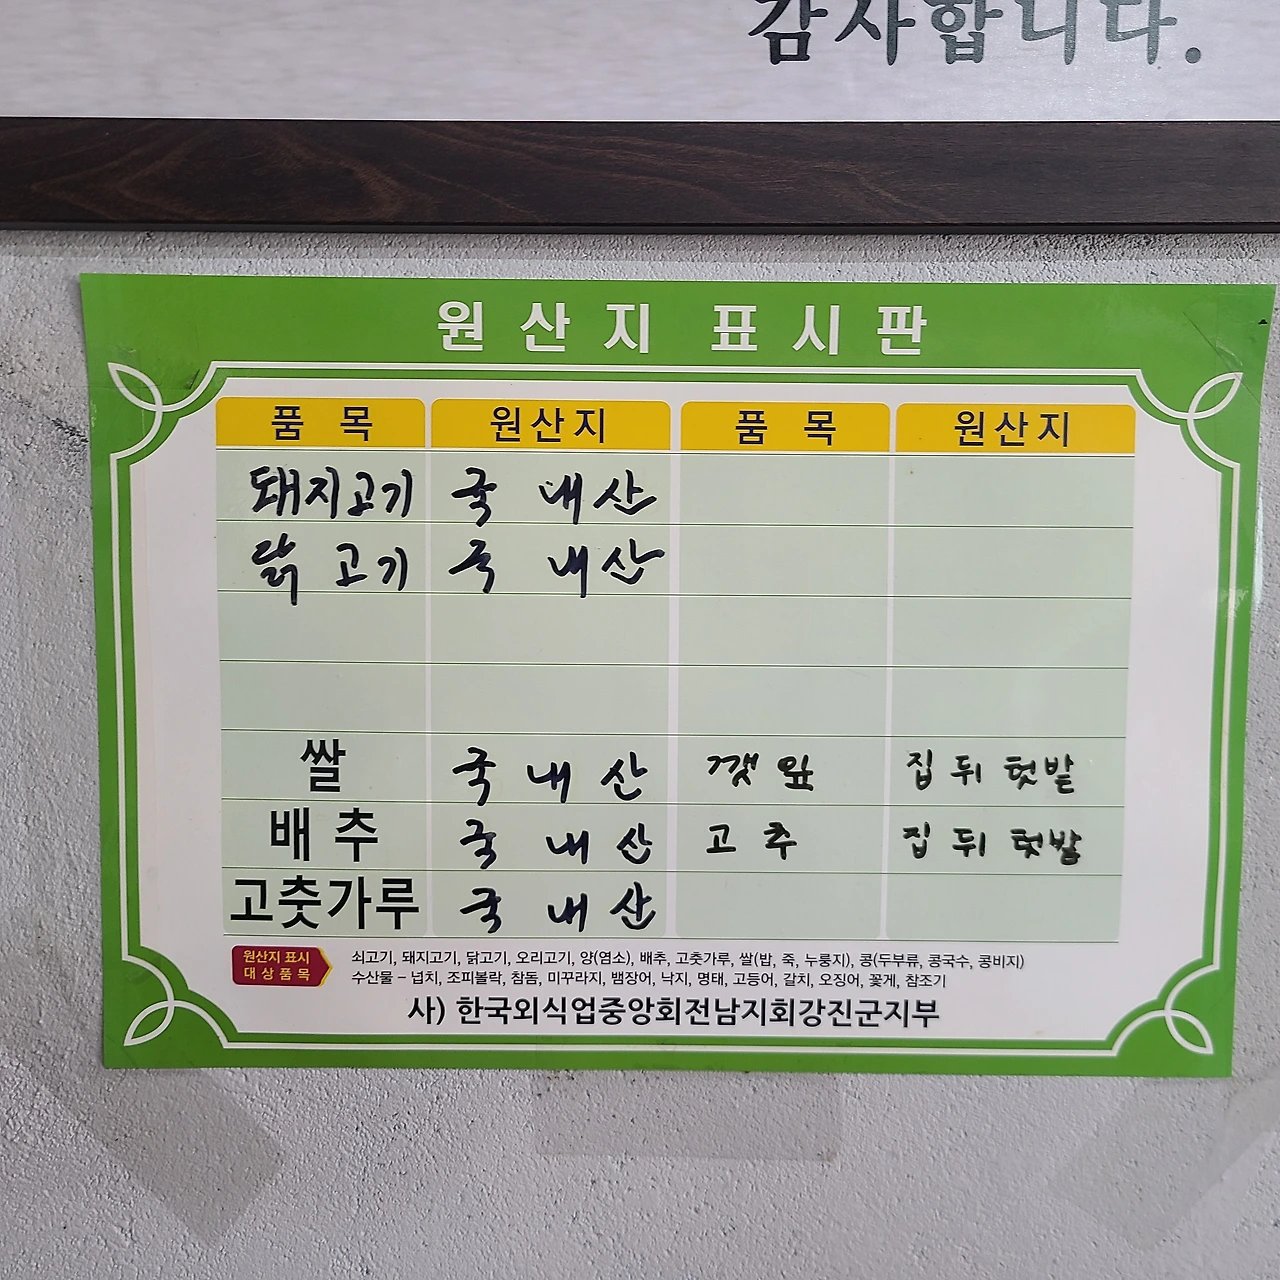 감사합니다.
원산지 표시판
품목 원산지 품목 원산지
돼지고기 국내산
닭고기 국내산
쌀 국내산 깻잎 집 뒤 텃밭
배추 국내산 고추 집 뒤 텃밭
고춧가루 국내산
원산지 표시 대상품목
쇠고기, 돼지고기, 닭고기, 오리고기, 양(염소), 배추, 고춧가루, 쌀(밥, 죽, 누룽지), 콩(두부류, 콩국수, 콩비지)
수산물 – 넙치, 조피볼락, 참돔, 미꾸라지, 뱀장어, 낙지, 명태, 고등어, 갈치, 오징어, 꽃게, 참조기
사) 한국외식업중앙회전남지회강진군지부